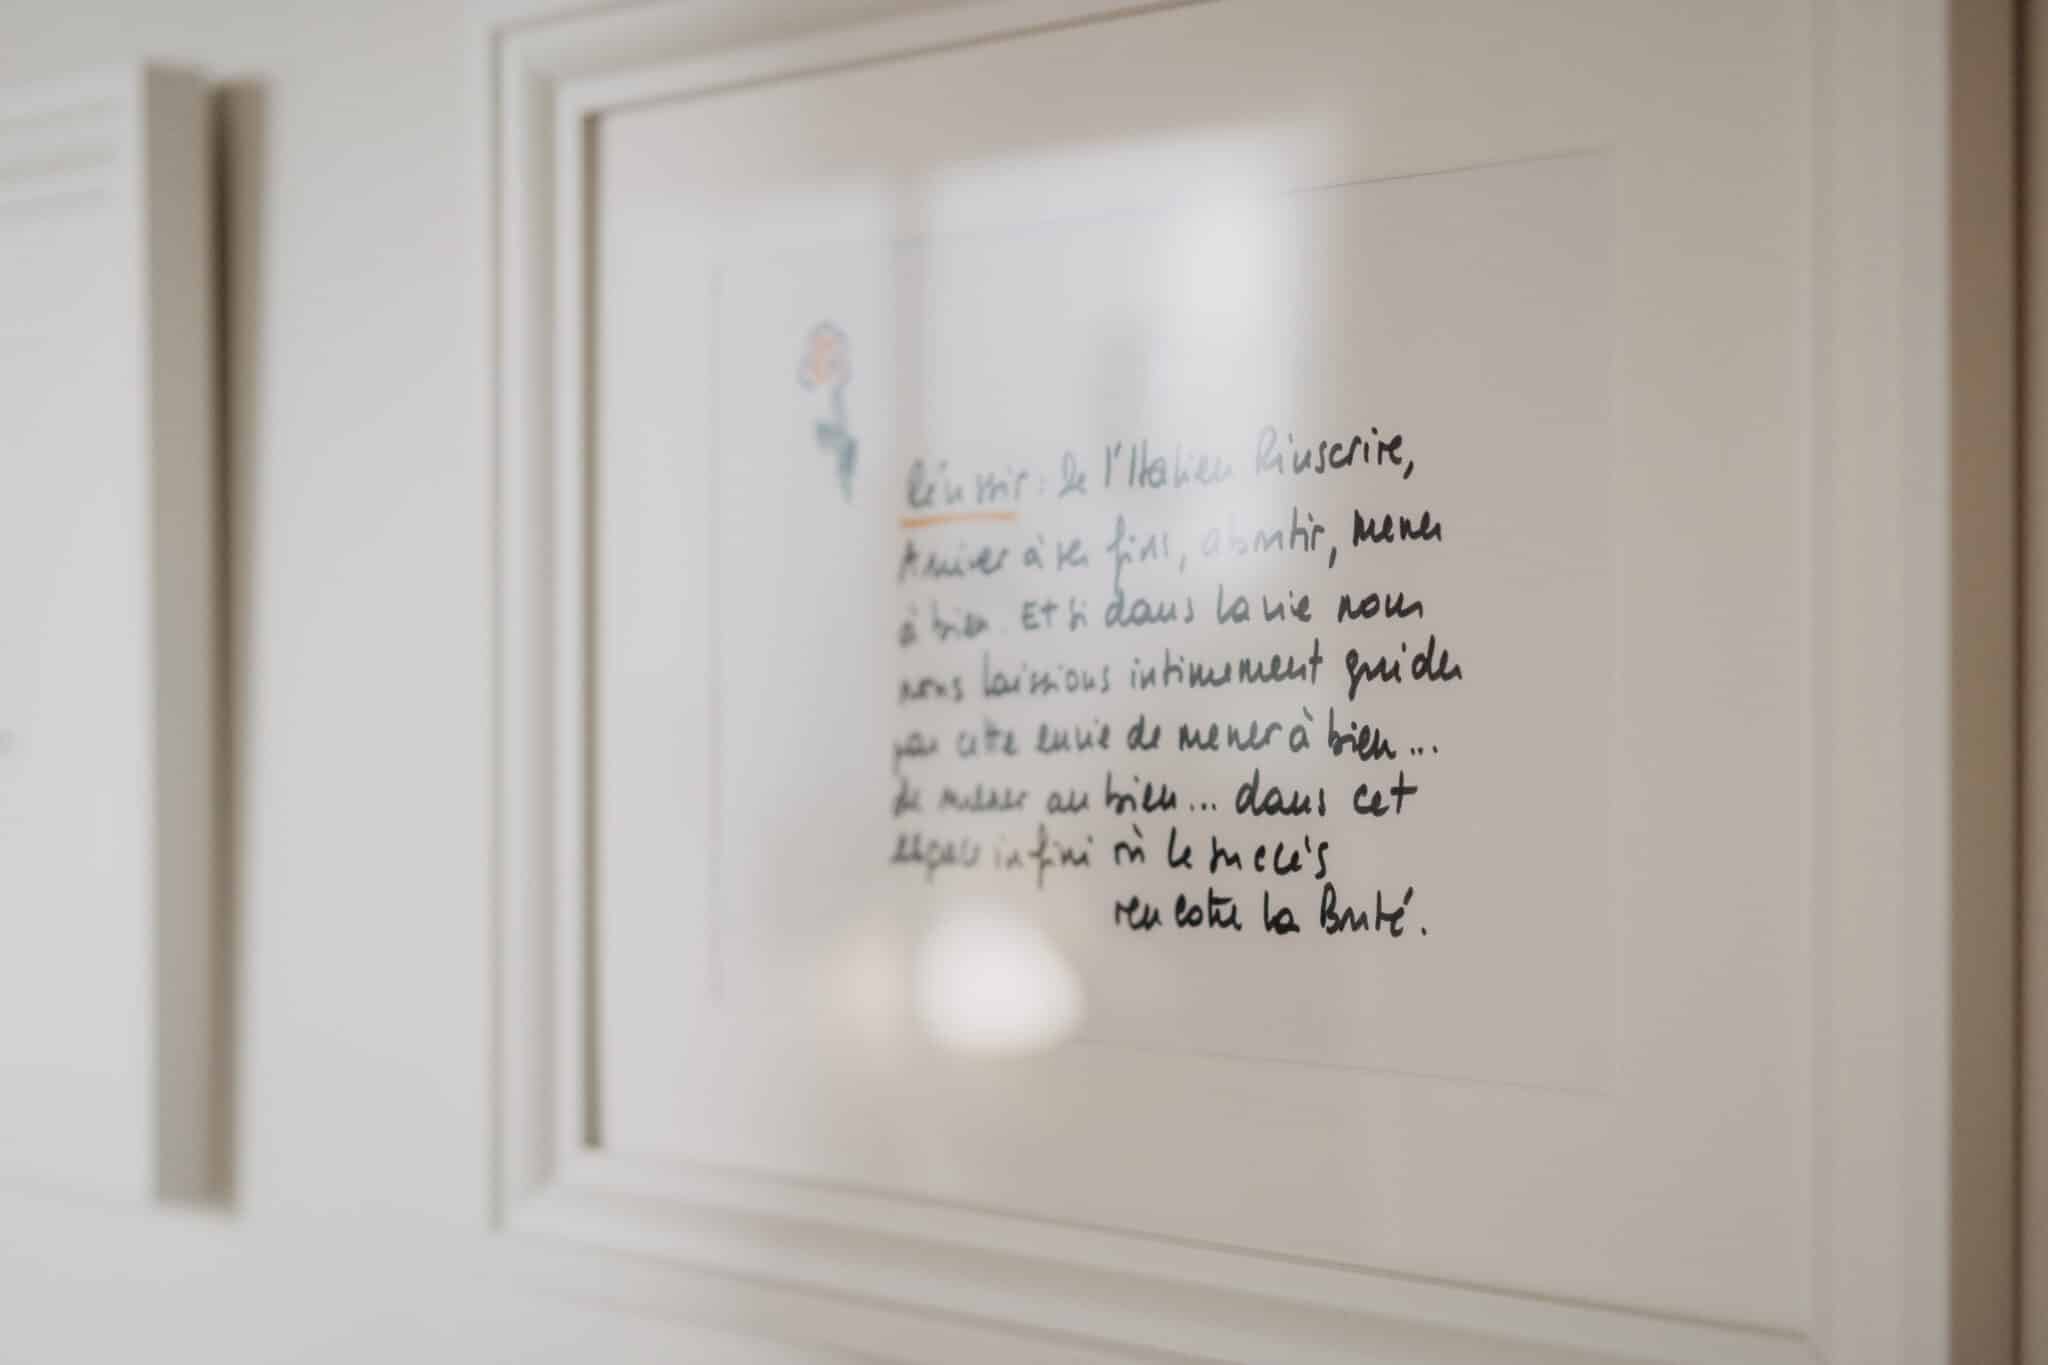 Réussir : de l'Italien Rinscrire,
Arriver à ses fins, aboutir, mener
à bien. Et si dans la vie nous
nous laissions intimement guider
par cette envie de mener à bien...
de mener au bien... dans cet
espace infini où le succès
rencotre la Bonté.